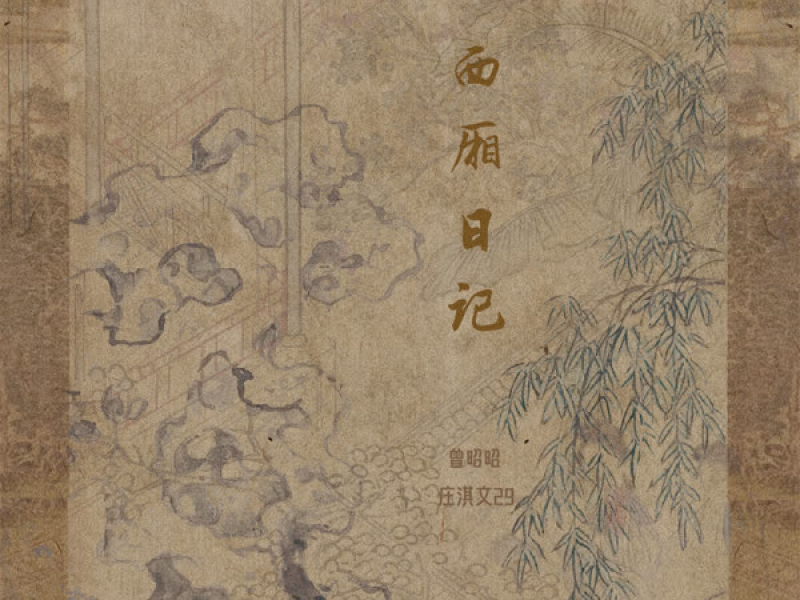 西厢日记
曾昭昭
庄淇文29